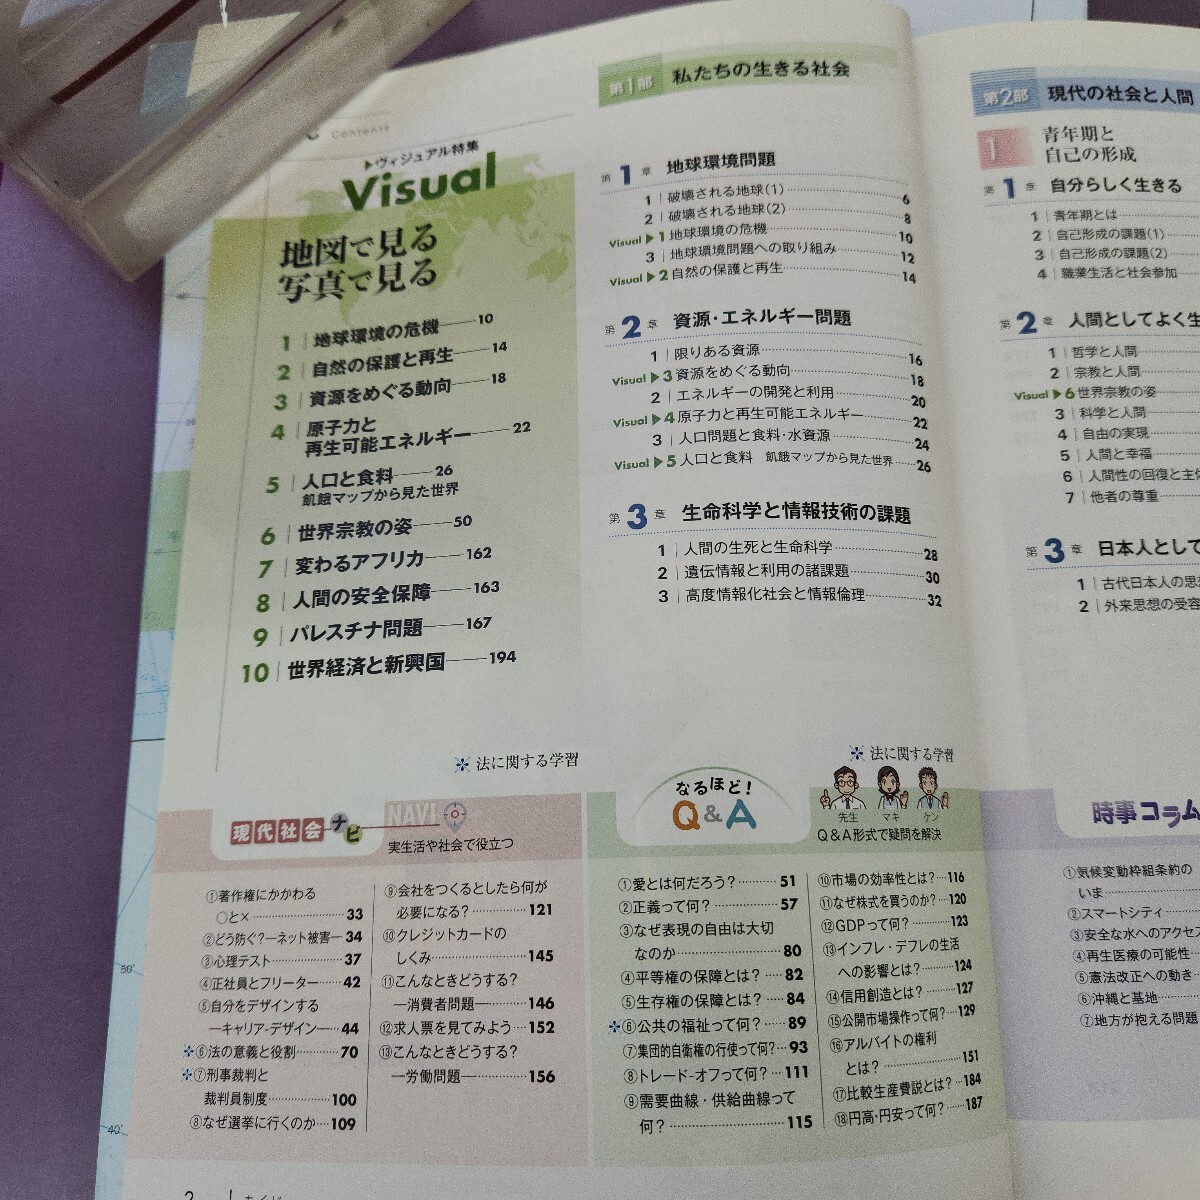 Contents
▶ヴィジュアル特集
Visual
地図で見る
写真で見る
1 地球環境の危機――10
2 自然の保護と再生――14
3 資源をめぐる動向――18
4 原子力と
再生可能エネルギー――22
5 人口と食料――26
飢餓マップから見た世界
6 世界宗教の姿――50
7 変わるアフリカ――162
8 人間の安全保障――163
9 パレスチナ問題――167
10 世界経済と新興国――194
✲ 法に関する学習
第1部 私たちの生きる社会
第1章 地球環境問題
1 破壊される地球(1)……6
2 破壊される地球(2)……8
Visual▶1 地球環境の危機……10
3 地球環境問題への取り組み……12
Visual▶2 自然の保護と再生……14
第2章 資源・エネルギー問題
1 限りある資源……16
Visual▶3 資源をめぐる動向……18
2 エネルギーの開発と利用……20
Visual▶4 原子力と再生可能エネルギー……22
3 人口問題と食料・水資源……24
Visual▶5 人口と食料 飢餓マップから見た世界……26
第3章 生命科学と情報技術の課題
1 人間の生死と生命科学……28
2 遺伝情報と利用の諸課題……30
3 高度情報化社会と情報倫理……32
✲ 法に関する学習
第2部 現代の社会と人間
1 青年期と
自己の形成
第1章 自分らしく生きる
1 青年期とは
2 自己形成の課題(1)
3 自己形成の課題(2)
4 職業生活と社会参加
第2章 人間としてよく生
1 哲学と人間
2 宗教と人間
Visual▶6 世界宗教の姿
3 科学と人間
4 自由の実現
5 人間と幸福
6 人間性の回復と主体
7 他者の尊重
第3章 日本人として
1 古代日本人の思
2 外来思想の受容
現代社会ナビ
NAVI
実生活や社会で役立つ
①著作権にかかわる
○と×……33
②どう防ぐ?―ネット被害―34
③心理テスト……37
④正社員とフリーター……42
⑤自分をデザインする
―キャリア・デザイン―…44
✲⑥法の意義と役割……70
✲⑦刑事裁判と
裁判員制度……100
⑧なぜ選挙に行くのか…109
⑨会社をつくるとしたら何が
必要になる?……121
⑩クレジットカードの
しくみ……145
⑪こんなときどうする?
―消費者問題―……146
⑫求人票を見てみよう…152
⑬こんなときどうする?
―労働問題―……156
なるほど!
Q&A
先生 マキ ケン
Q&A形式で疑問を解決
①愛とは何だろう?……51
②正義って何?……57
③なぜ表現の自由は大切
なのか……80
④平等権の保障とは?…82
⑤生存権の保障とは?…84
✲⑥公共の福祉って何?…89
⑦集団的自衛権の行使って何?…93
⑧トレード-オフって何?…111
⑨需要曲線・供給曲線って
何?……115
⑩市場の効率性とは?…116
⑪なぜ株式を買うのか?…120
⑫GDPって何?……123
⑬インフレ・デフレの生活
への影響とは?……124
⑭信用創造とは?……127
⑮公開市場操作って何?…129
⑯アルバイトの権利
とは?……151
⑰比較生産費説とは?…184
⑱円高・円安って何?……187
時事コラム
①気候変動枠組条約の
いま
②スマートシティ
③安全な水へのアクセス
④再生医療の可能性
⑤憲法改正への動き
⑥沖縄と基地
⑦地方が抱える問題
50°
40°
2